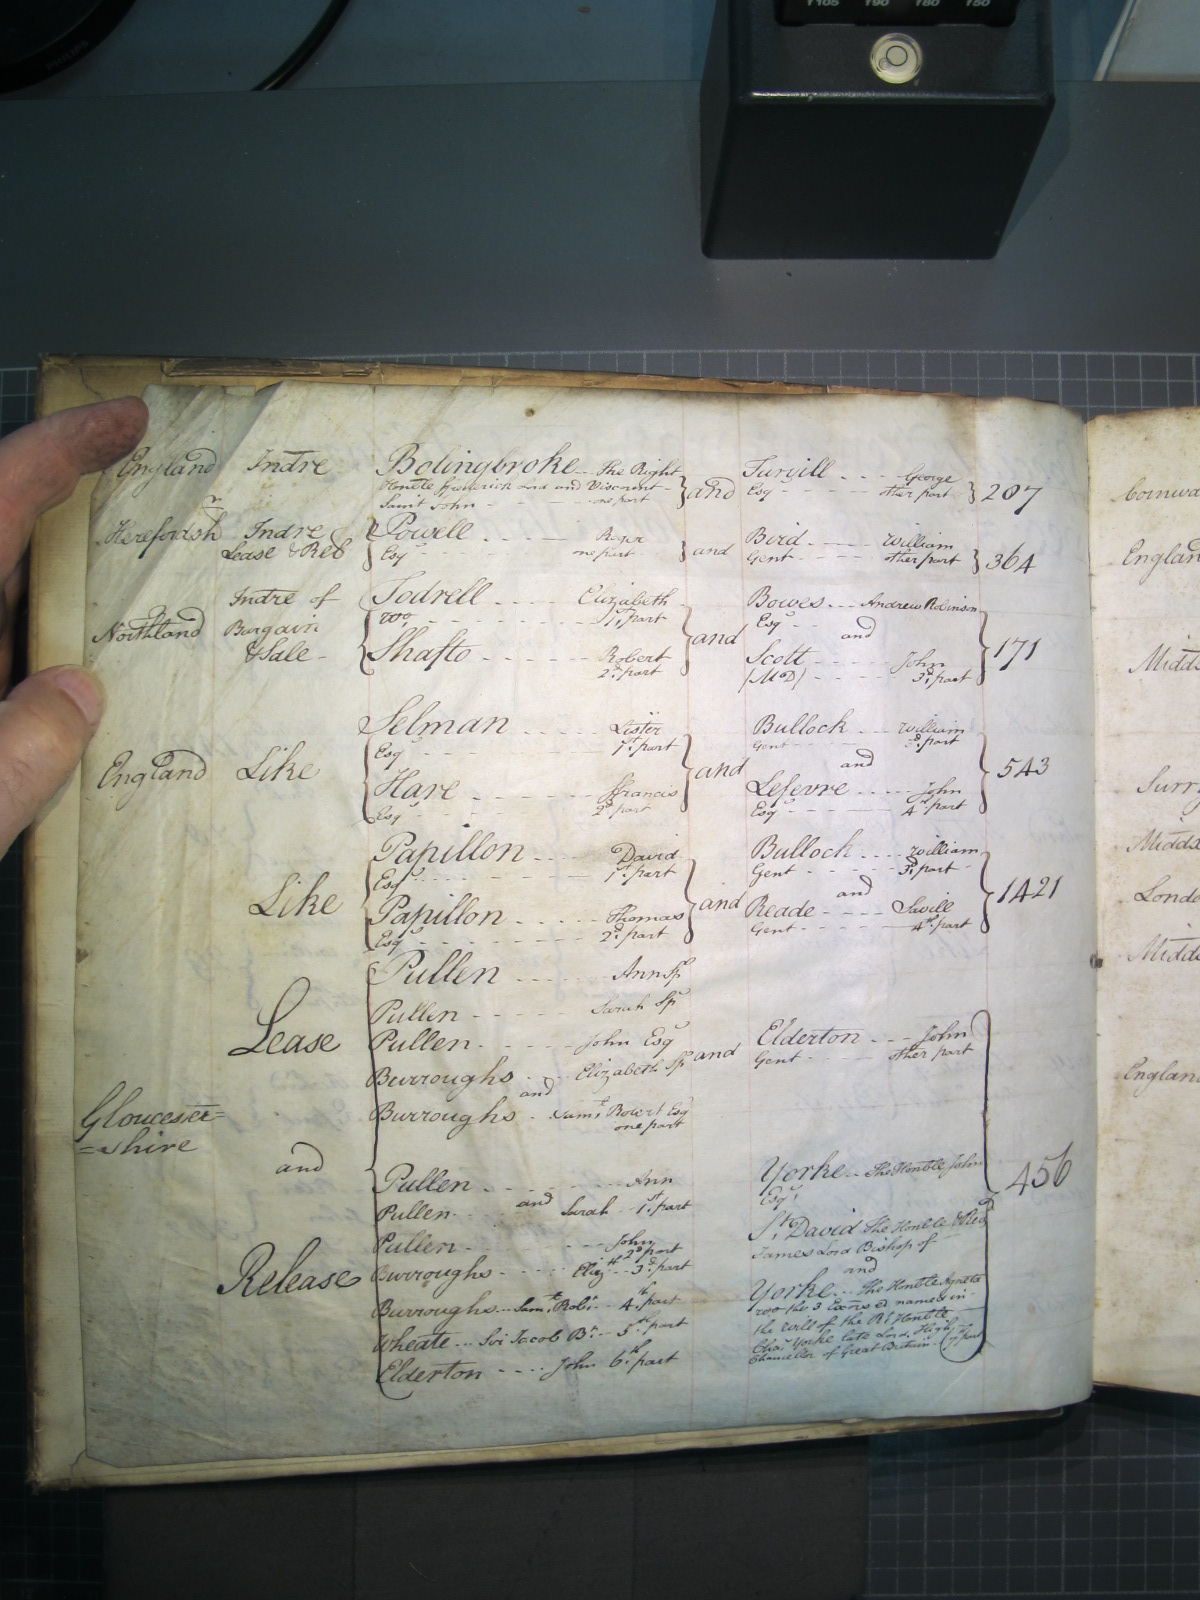 PHILIPS
T105 T90 T80 T50
England Indre Bolingbroke The Right and Turvill George 207
Honble ffrederick Lord and Viscount Esq other part
Saint John one part
Herefordsh Indre Powell Roger and Bird William 364
Lease & Rel Esq one part Gent other part
Indre of Todrell Elizabeth Bowes Andrew Robinson
Northland Bargain Wo 1st part and Esq and 171
& Sale Shafto Robert Scott John
2d part (MD) 3d part
Selman Lister Bullock William
Esq 1st part Gent 3d part
England Like and and 543
Hare ffrancis Lefevre John
Esq 2d part Esq 4th part
Papillon David Bullock William
Esq 1st part Gent 3d part
Like and and 1421
Papillon Thomas Reade Savill
Esq 2d part Gent 4th part
Pullen Ann Sp
Pullen Sarah Sp
Lease Pullen John Esq and Elderton John
Burroughs Elizabeth Sp Gent other part
and
Burroughs Saml Robert Esq
one part
Gloucester=
=shire
and 456
Pullen Ann Yorke The Honble John
and Esq
Pullen Sarah 1st part St David The Honble & Rev
Pullen John 2d part James Lord Bishop of
and
Release Burroughs Eliz 3d part Yorke The Honble Agneta
Burroughs Saml Robt 4th part wo the 3 Excors ed named in
the will of the Rt Honble
Wheate Sir Jacob Bt 5th part Chas Yorke late Lord High
Elderton John 6th part Chancellor of Great Britain 7th part
Cornwa
England
Midds
Surry
Midds
London
Midds
England